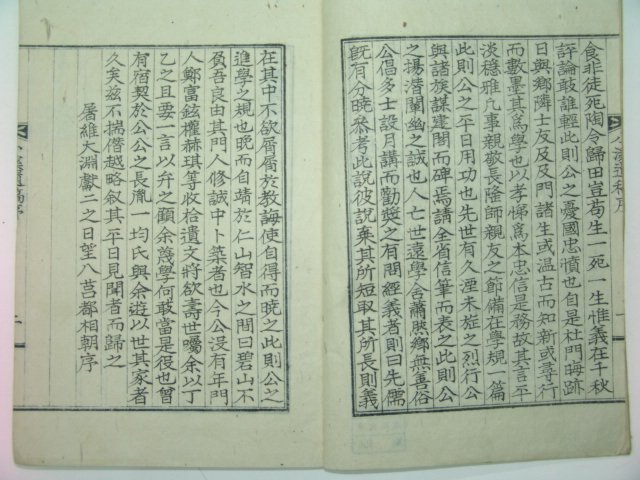 食非徒死陶令歸田豈苟生一死一生惟義在千秋
評論敢誰輕此則公之憂國忠憤也自是杜門晦跡
日與鄉隣士友及及門諸生或温古而知新或尋行
而數墨其為學也以孝悌為本忠信是務故其言平
淡穩雅凡事親敬長隆師親友之節備在學規一篇
此則公之平日用功也先世有久湮未旌之烈行公
與諸族謀建閣而碑焉請全省信筆而表之此則公
之揚潛闡幽之誠也人亡世遠學舍蕭然鄉無善俗
公倡多士設月講而勸奬之有問經義者則曰先儒
旣有分曉參考此說彼說棄其所短取其所長則義
在其中不欲屑屑於敎誨使自得而曉之此則公之
進學之規也晚而自靖於仁山智水之間曰碧山不
負吾良由其門人修誠中卜築者也今公沒有年門
人鄭富鉉權赫琪等收拾遺文將欲壽世囑余以丁
乙之且要一言以弁之顧余蔑學何敢當是役也曾
有宿契於公公之長胤一均氏與余遊以世其家者
久矣玆不揣僭越略叙其平日見聞者而歸之
屠維大淵獻二之日望八莒都相朝序
遺稿序
一
二